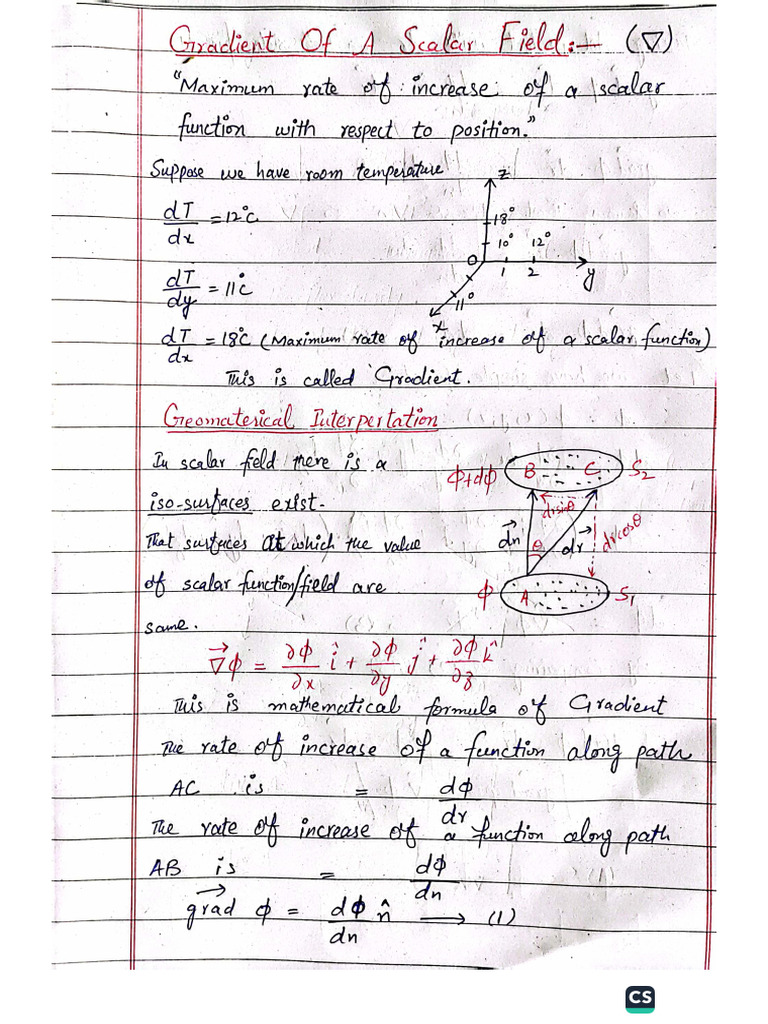 Gradient Of A Scalar Field:- (∇)
"Maximum rate of increase of a scalar
function with respect to position."
Suppose we have room temperature
dT/dx = 12°C
dT/dy = 11°C
dT/dx = 18°C (Maximum rate of increase of a scalar function)
z
18°
10° 12°
O 1 2 y
11°
x
This is called Gradient.
Geomaterical Interpertation
In scalar field there is a
iso-surfaces exist.
That surfaces at which the value
of scalar function/field are
same.
ϕ+dϕ B C S₂
drsinθ
dn→ θ dr→ drcosθ
ϕ A S₁
∇→ϕ = ∂ϕ/∂x î + ∂ϕ/∂y ĵ + ∂ϕ/∂z k̂
This is mathematical formula of Gradient
The rate of increase of a function along path
AC is = dϕ/dr
The rate of increase of a function along path
AB is = dϕ/dn
grad→ ϕ = dϕ/dn n̂ ⟶ (1)
CS